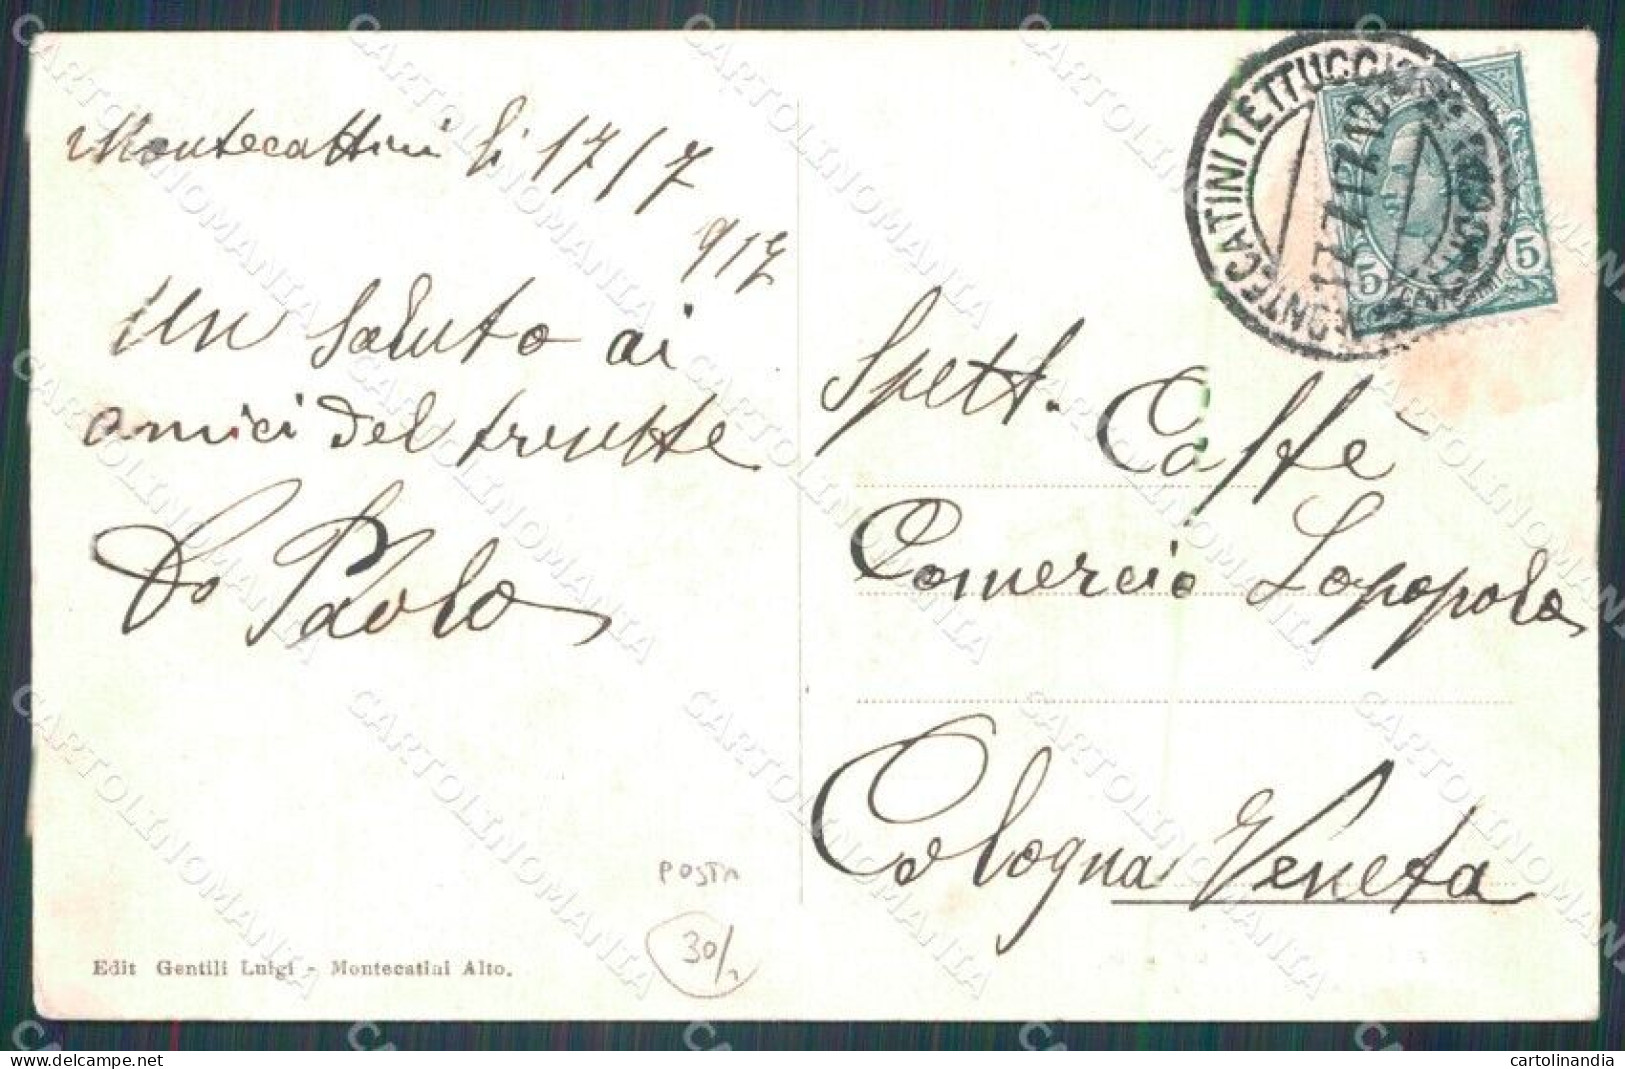 Montecattini li 17/7
917
Un Saluto ai
amici del tresette
Do Paolo
Edit Gentili Luigi - Montecatini Alto.
POSTA
30/
MONTECATINI TETTUCCIO
17.7.17.12
5 5
CENTESIMI
Spett.
Caffè
Comercio Lopopolo
Cologna Veneta
CARTOLINOMANIA
cartolinandia